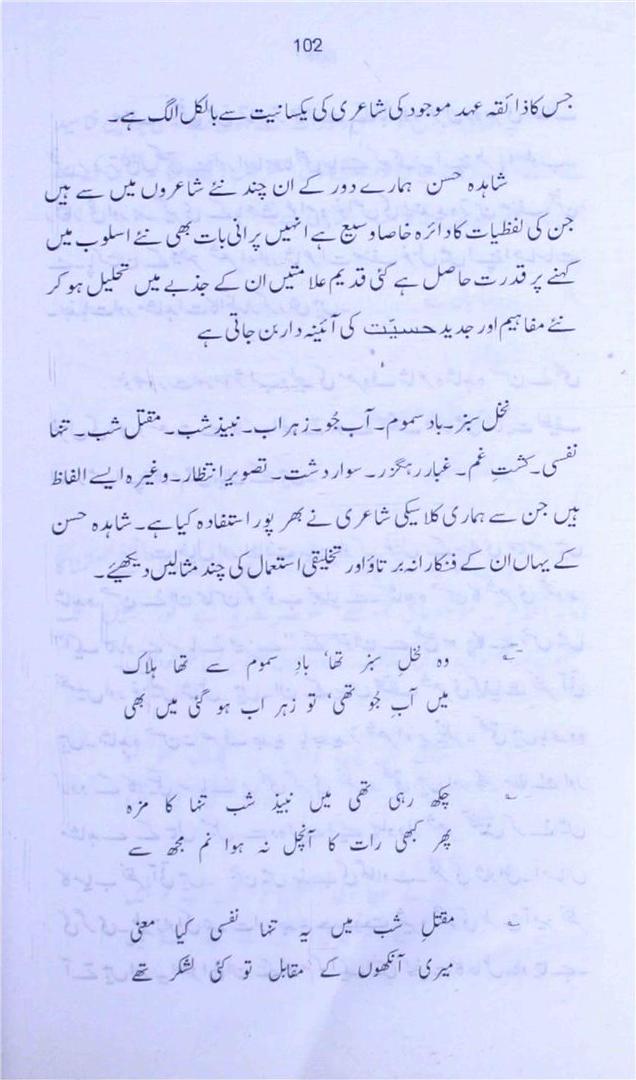 102
جس کا ذائقہ عہد موجود کی شاعری کی یکسانیت سے بالکل الگ ہے۔
شاہدہ حسن ہمارے دور کے ان چند نئے شاعروں میں سے ہیں
جن کی لفظیات کا دائرہ خاصا وسیع ہے انہیں پرانی بات بھی نئے اسلوب میں
کہنے پر قدرت حاصل ہے کئی قدیم علامتیں ان کے جذبے میں تحلیل ہو کر
نئے مفاہیم اور جدید حسیّت کی آئینہ دار بن جاتی ہے
نخل سبز۔ باد سموم۔ آب جُو۔ زہر اب۔ نبیذ شب۔ مقتل شب۔ تنہا
نفسی۔ کشتِ غم۔ غبار رہگزر۔ سوار دشت۔ تصویر انتظار۔ وغیرہ ایسے الفاظ
ہیں جن سے ہماری کلاسیکی شاعری نے بھر پور استفادہ کیا ہے۔ شاہدہ حسن
کے یہاں ان کے فنکارانہ برتاؤ اور تخلیقی استعمال کی چند مثالیں دیکھئے۔
وہ نخلِ سبز تھا، بادِ سموم سے تھا ہلاک
میں آبِ جُو تھی، تو زہر اب ہو گئی میں بھی
چکھ رہی تھی میں نبیذ شب تنہا کا مزہ
پھر کبھی رات کا آنچل نہ ہوا نم مجھ سے
مقتلِ شب میں یہ تنہا نفسی کیا معنی
میری آنکھوں کے مقابل تو کئی لشکر تھے